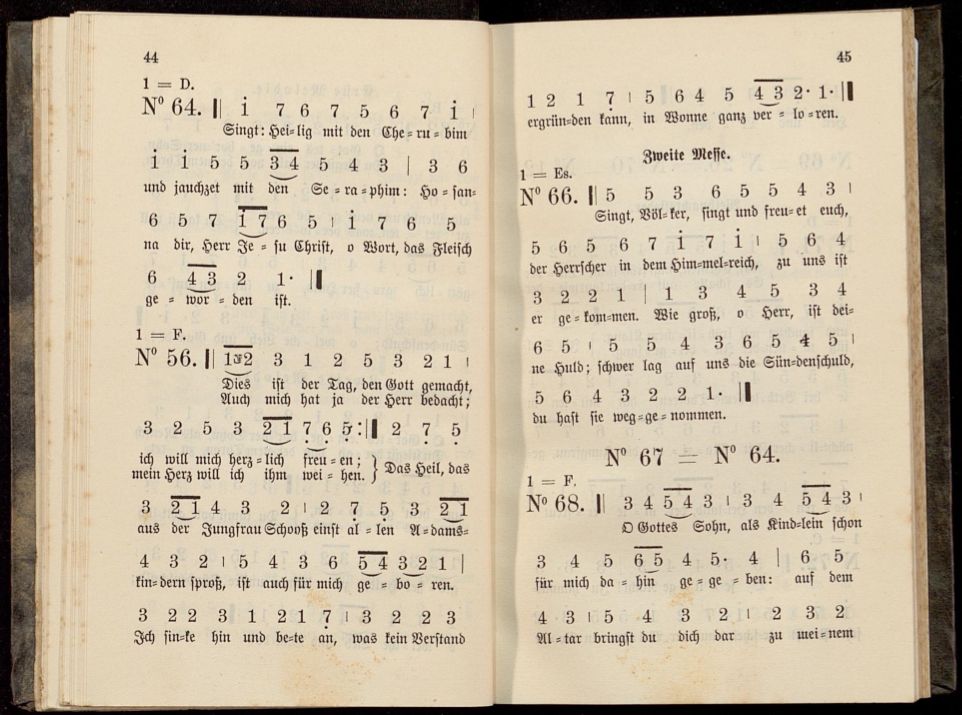 44
1 = D.
Nº 64. || 1̇ 7 6 7 5 6 7 1̇ |
Singt: Hei=lig mit den Che=ru=bim
1̇ 1̇ 5 5 3 4 5 4 3 | 3 6
und jauchzet mit den Se=ra=phim: Ho=san=
6 5 7 1̇ 7 6 5 | 1̇ 7 6 5
na dir, Herr Je=su Christ, o Wort, das Fleisch
6 4 3 2 1· ||
ge=wor=den ist.
1 = F.
Nº 56. || 1 2 3 1 2 5 3 2 1 |
Dies ist der Tag, den Gott gemacht,
Auch mich hat ja der Herr bedacht;
3 2 5 3 2 1 7̣ 6̣ 5̣ :|| 2 7̣ 5̣
ich will mich herz=lich freu=en; } Das Heil, das
mein Herz will ich ihm wei=hen.
3 2 1 4 3 2 | 2 7̣ 5̣ 3 2 1
aus der Jungfrau Schooß einst al=len A=dams=
4 3 2 | 5 4 3 6 5 4 3 2 1 |
kin=dern sproß, ist auch für mich ge=bo=ren.
3 2 2 3 1 2 1 7̣ | 3 2 2 3
Ich sin=ke hin und be=te an, was kein Verstand
45
1 2 1 7̣ | 5 6 4 5 4 3 2· 1· ||
ergrün=den kann, in Wonne ganz ver=lo=ren.
Zweite Messe.
1 = Es.
Nº 66. || 5 5 3 6 5 5 4 3 |
Singt, Völ=ker, singt und freu=et euch,
5 6 5 6 7 1̇ 7 1̇ | 5 6 4
der Herrscher in dem Him=mel=reich, zu uns ist
3 2 2 1 | 1 3 4 5 3 4
er ge=kom=men. Wie groß, o Herr, ist dei=
6 5 | 5 5 4 3 6 5 4 5 |
ne Huld; schwer lag auf uns die Sün=denschuld,
5 6 4 3 2 2 1· ||
du hast sie weg=ge=nommen.
Nº 67 = Nº 64.
1 = F.
Nº 68. || 3 4 5 4 3 | 3 4 5 4 3 |
O Gottes Sohn, als Kind=lein schon
3 4 5 6 5 4 5· 4 | 6 5
für mich da=hin ge=ge=ben: auf dem
4 3 | 5 4 3 2 1 2 3 2
Al=tar bringst du dich dar zu mei=nem